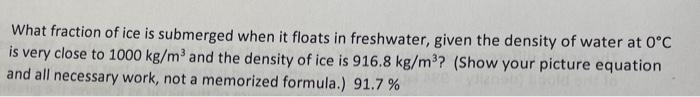 What fraction of ice is submerged when it floats in freshwater, given the density of water at 0°C
is very close to 1000 kg/m³ and the density of ice is 916.8 kg/m³? (Show your picture equation
and all necessary work, not a memorized formula.) 91.7 %